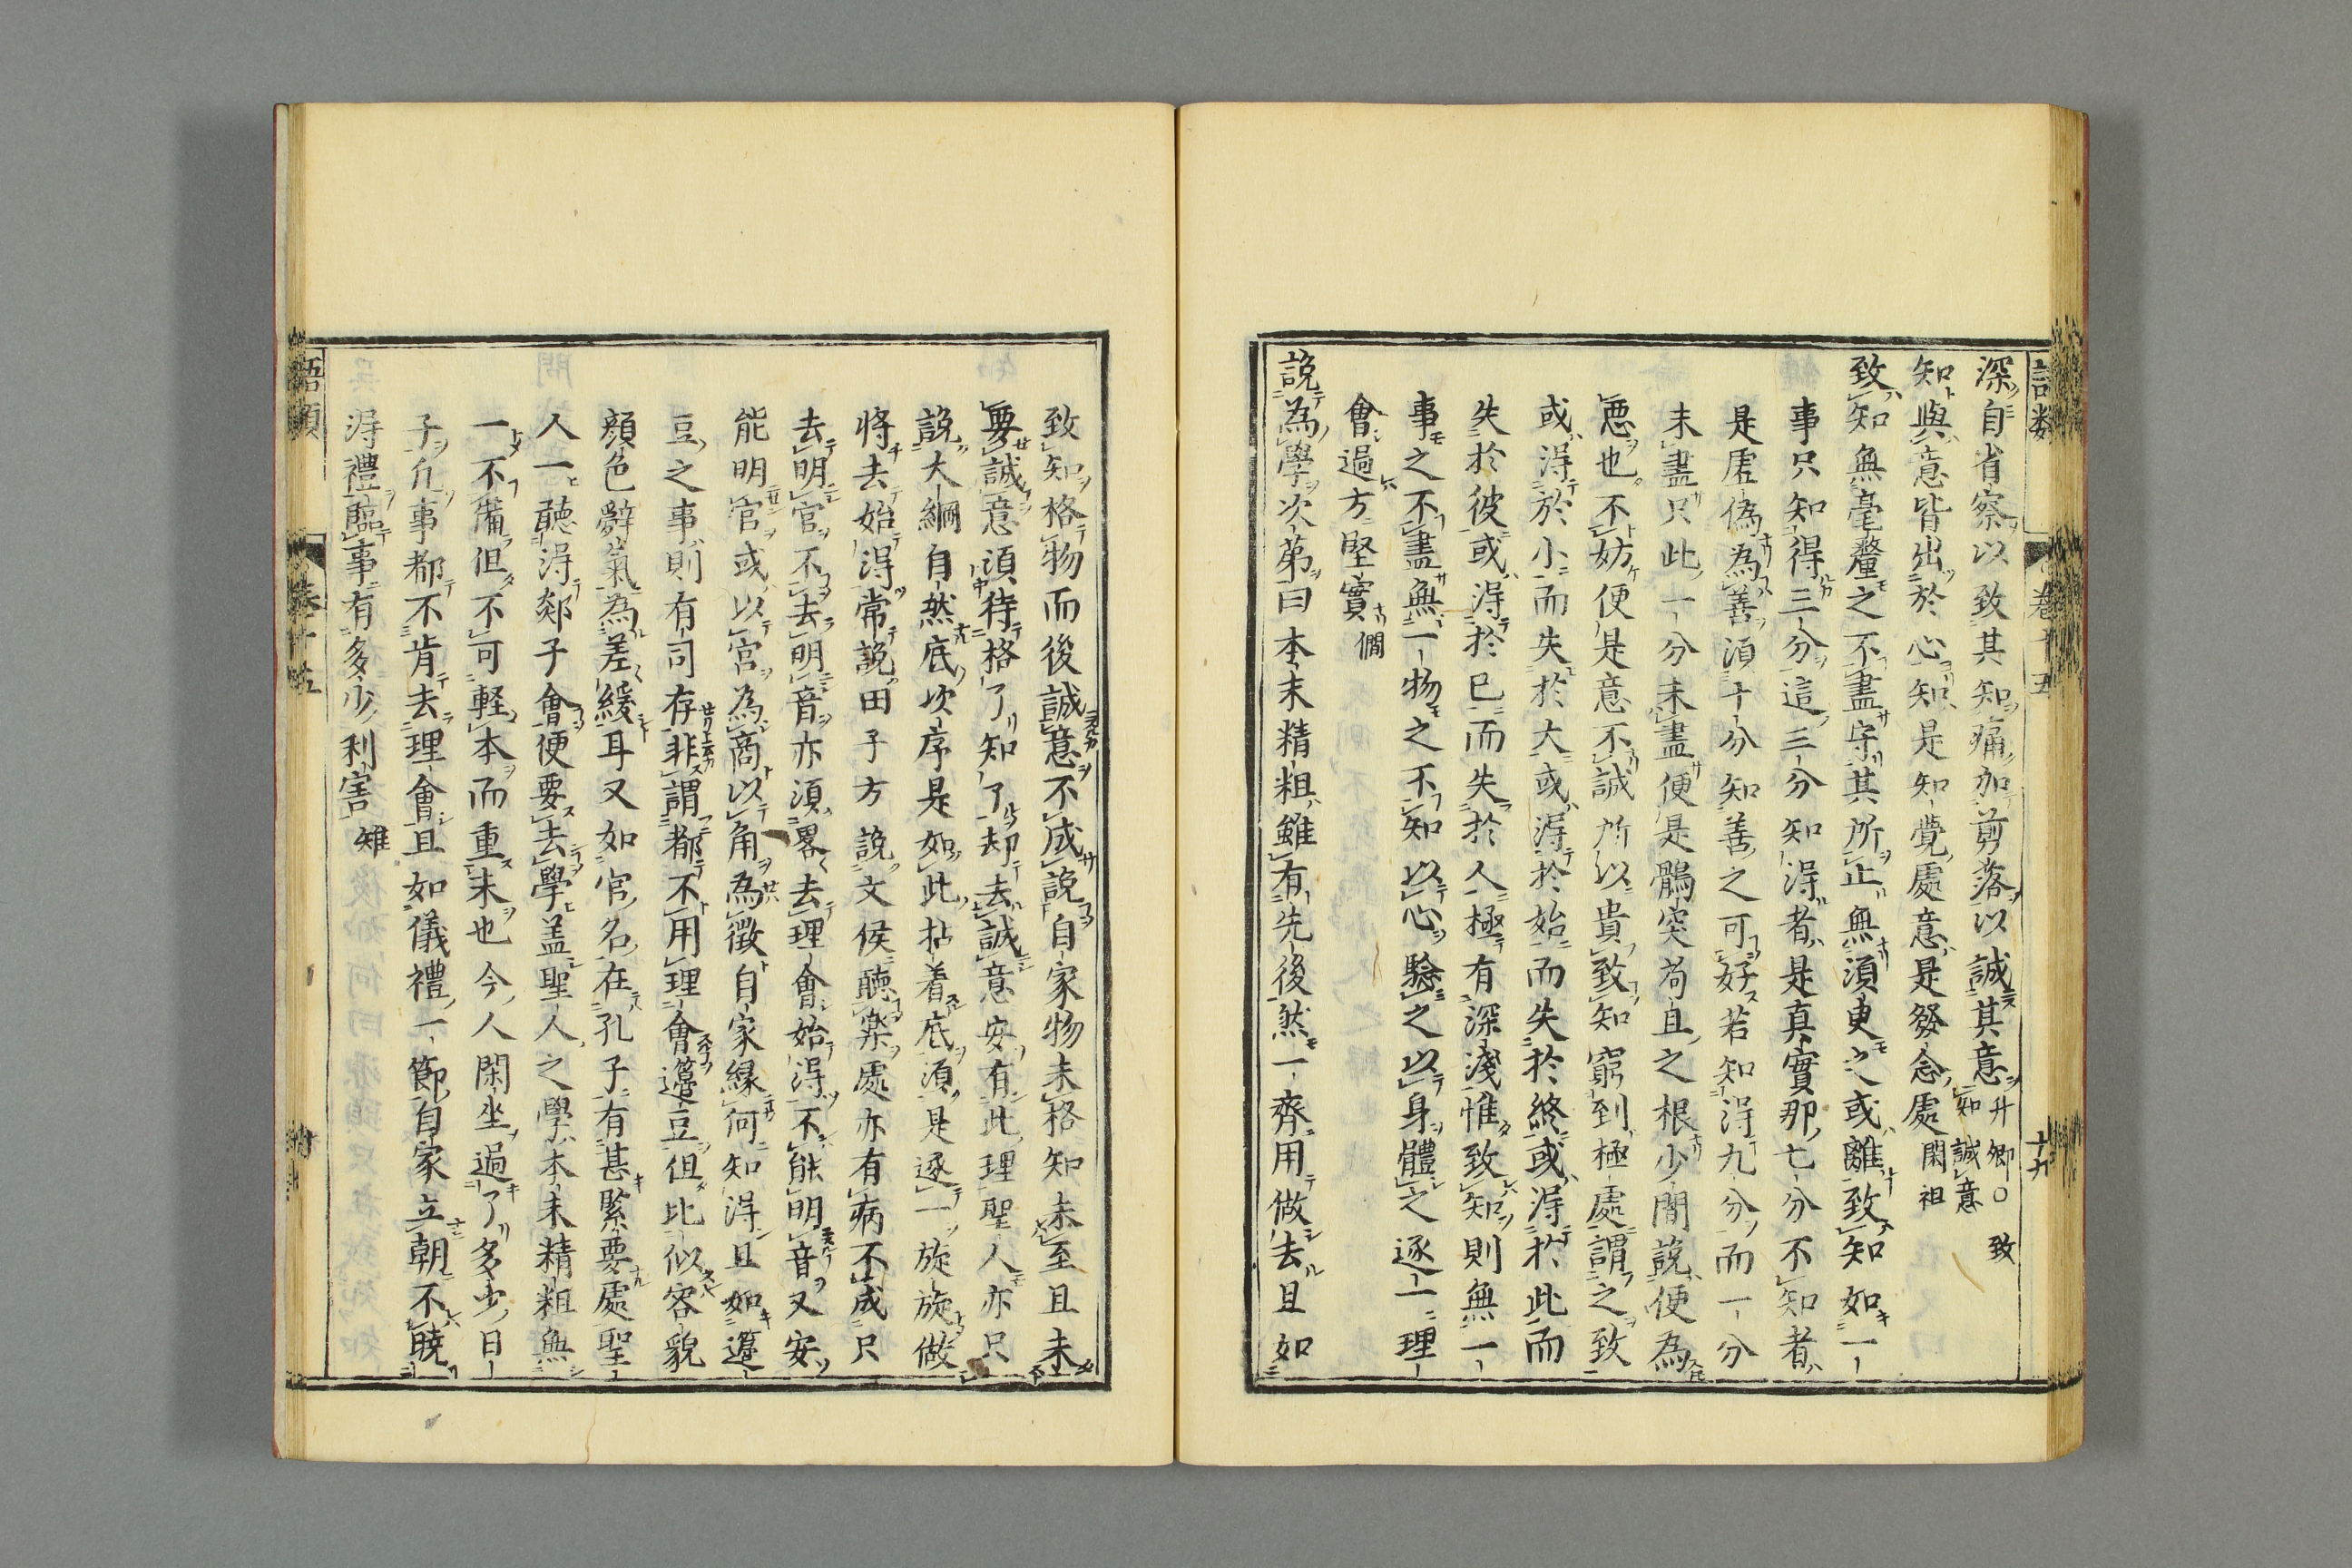 語類 卷十五 十九
深自省察以致其知痛加剪落以誠其意升卿○致知誠意
知與意皆出於心知是知覺處意是發念處閎祖
致知無毫釐之不盡守其所止無須㬰之或離致知如一
事只知得三分這三分知得者是真實那七分不知者
是虛偽為善須十分知善之可好若知得九分而一分
未盡只此一分未盡便是鶻突苟且之根少間說便為
惡也不妨便是意不誠所以貴致知窮到極處謂之致
或得於小而失於大或得於始而失於終或得於此而
失於彼或得於己而失於人極有深淺惟致知則無一
事之不盡無一物之不知以心驗之以身體之逐一理
會過方堅實僩
說為學次第曰本末精粗雖有先後然一齊用做去且如
致知格物而後誠意不成說自家物未格知未至且未
要誠意須待格了知了却去誠意安有此理聖人亦只
說大綱自然底次序是如此拈着底須是逐一旋旋做
將去始得常說田子方說文侯聽樂處亦有病不成只
去明官不去明音亦須畧去理會始得不能明音又安
能明官或以宮為商以角為徵自家緣何知得且如籩
豆之事則有司存非謂都不用理會籩豆但比似容貌
顏色辭氣為差緩耳又如官名在孔子有甚緊要處聖
人一聽得郯子會便要去學盖聖人之學本末精粗無
一不備但不可軽本而重末也今人閑坐過了多少日
子凢事都不肯去理會且如儀禮一節自家立朝不曉
得禮臨事有多少利害雉
語類 卷十五